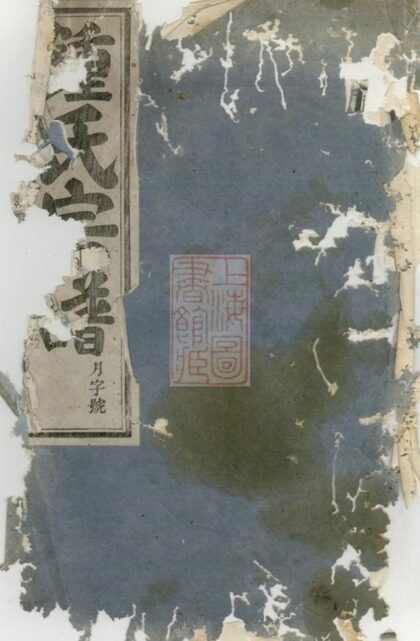 氏宗譜
月字號
上海圖
書館藏